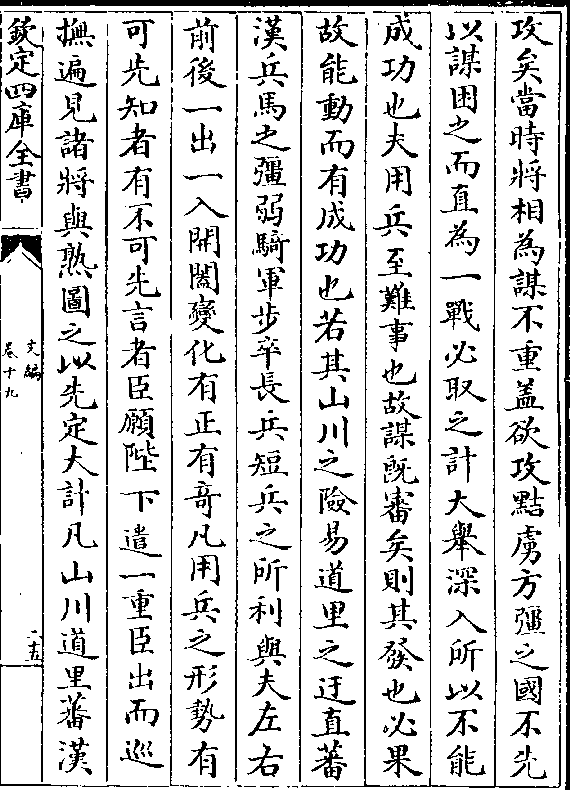 攻矣當時將相為謀不重盖欲攻黠虜方彊之國不先
以謀困之而直為一戰必取之計大舉深入所以不能
成功也夫用兵至難事也故謀既審矣則其發也必果
故能動而有成功也若其山川之險易道里之迂直蕃
漢兵馬之彊弱騎軍步卒長兵短兵之所利與夫左右
前後一出一入開闔變化有正有竒凡用兵之形勢有
可先知者有不可先言者臣願陛下遣一重臣出而巡
撫遍見諸將與熟圖之以先定大計凡山川道里蕃漢
欽定四庫全書
文編
卷十九
二十五